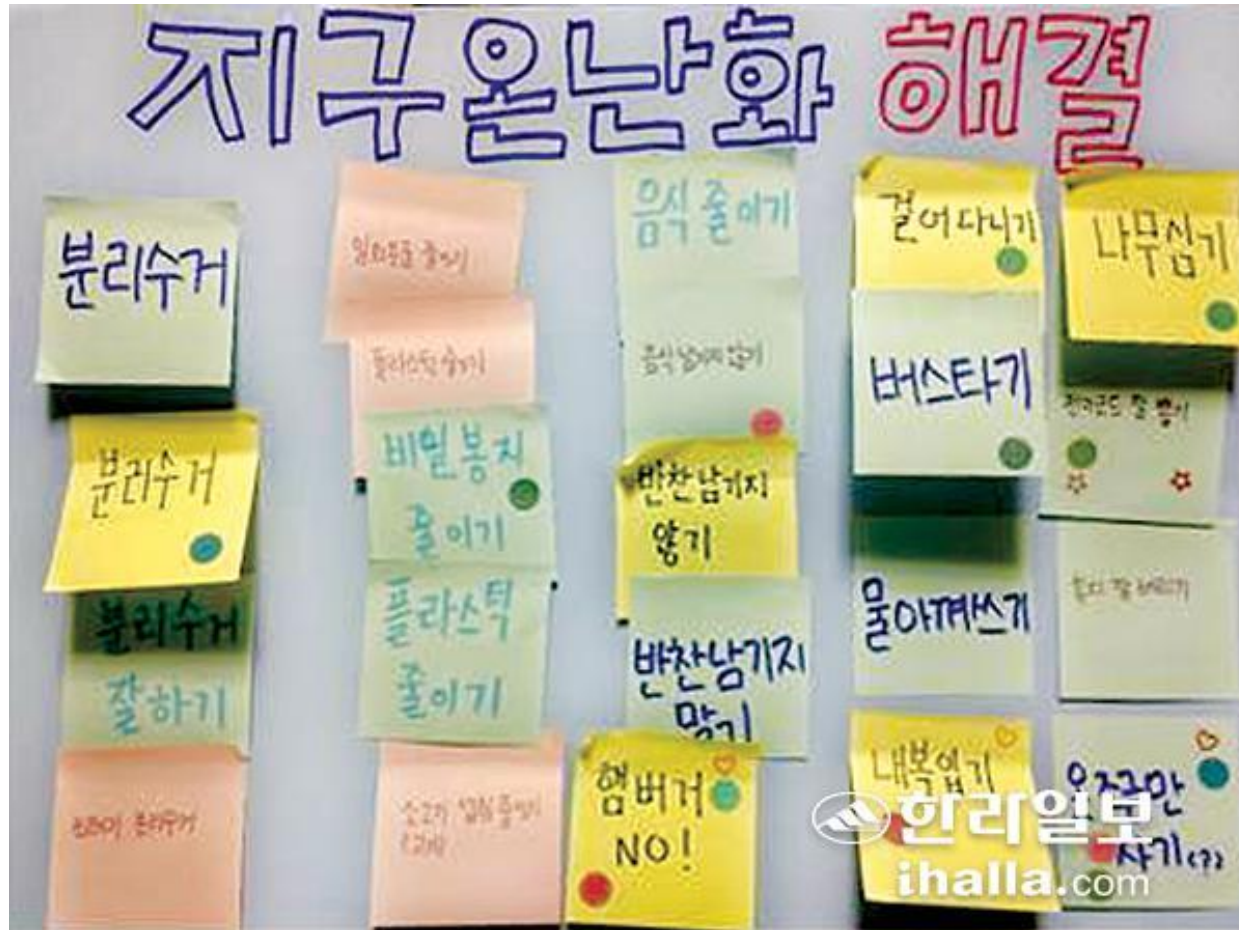 지구온난화 해결
분리수거
분리수거
분리수거
잘하기
분리수거
일회용품 줄이기
플라스틱 줄이기
비밀봉지
줄이기
플라스틱
줄이기
소고기 줄이기
음식 줄이기
음식 남기지 않기
반찬남기지
않기
반찬남기지
말기
햄버거
NO!
걸어다니기
버스타기
물아껴쓰기
내복입기
나무심기
잘 뽑기
잘 버리기
옷
만
사기(?)
한라일보
ihalla.com